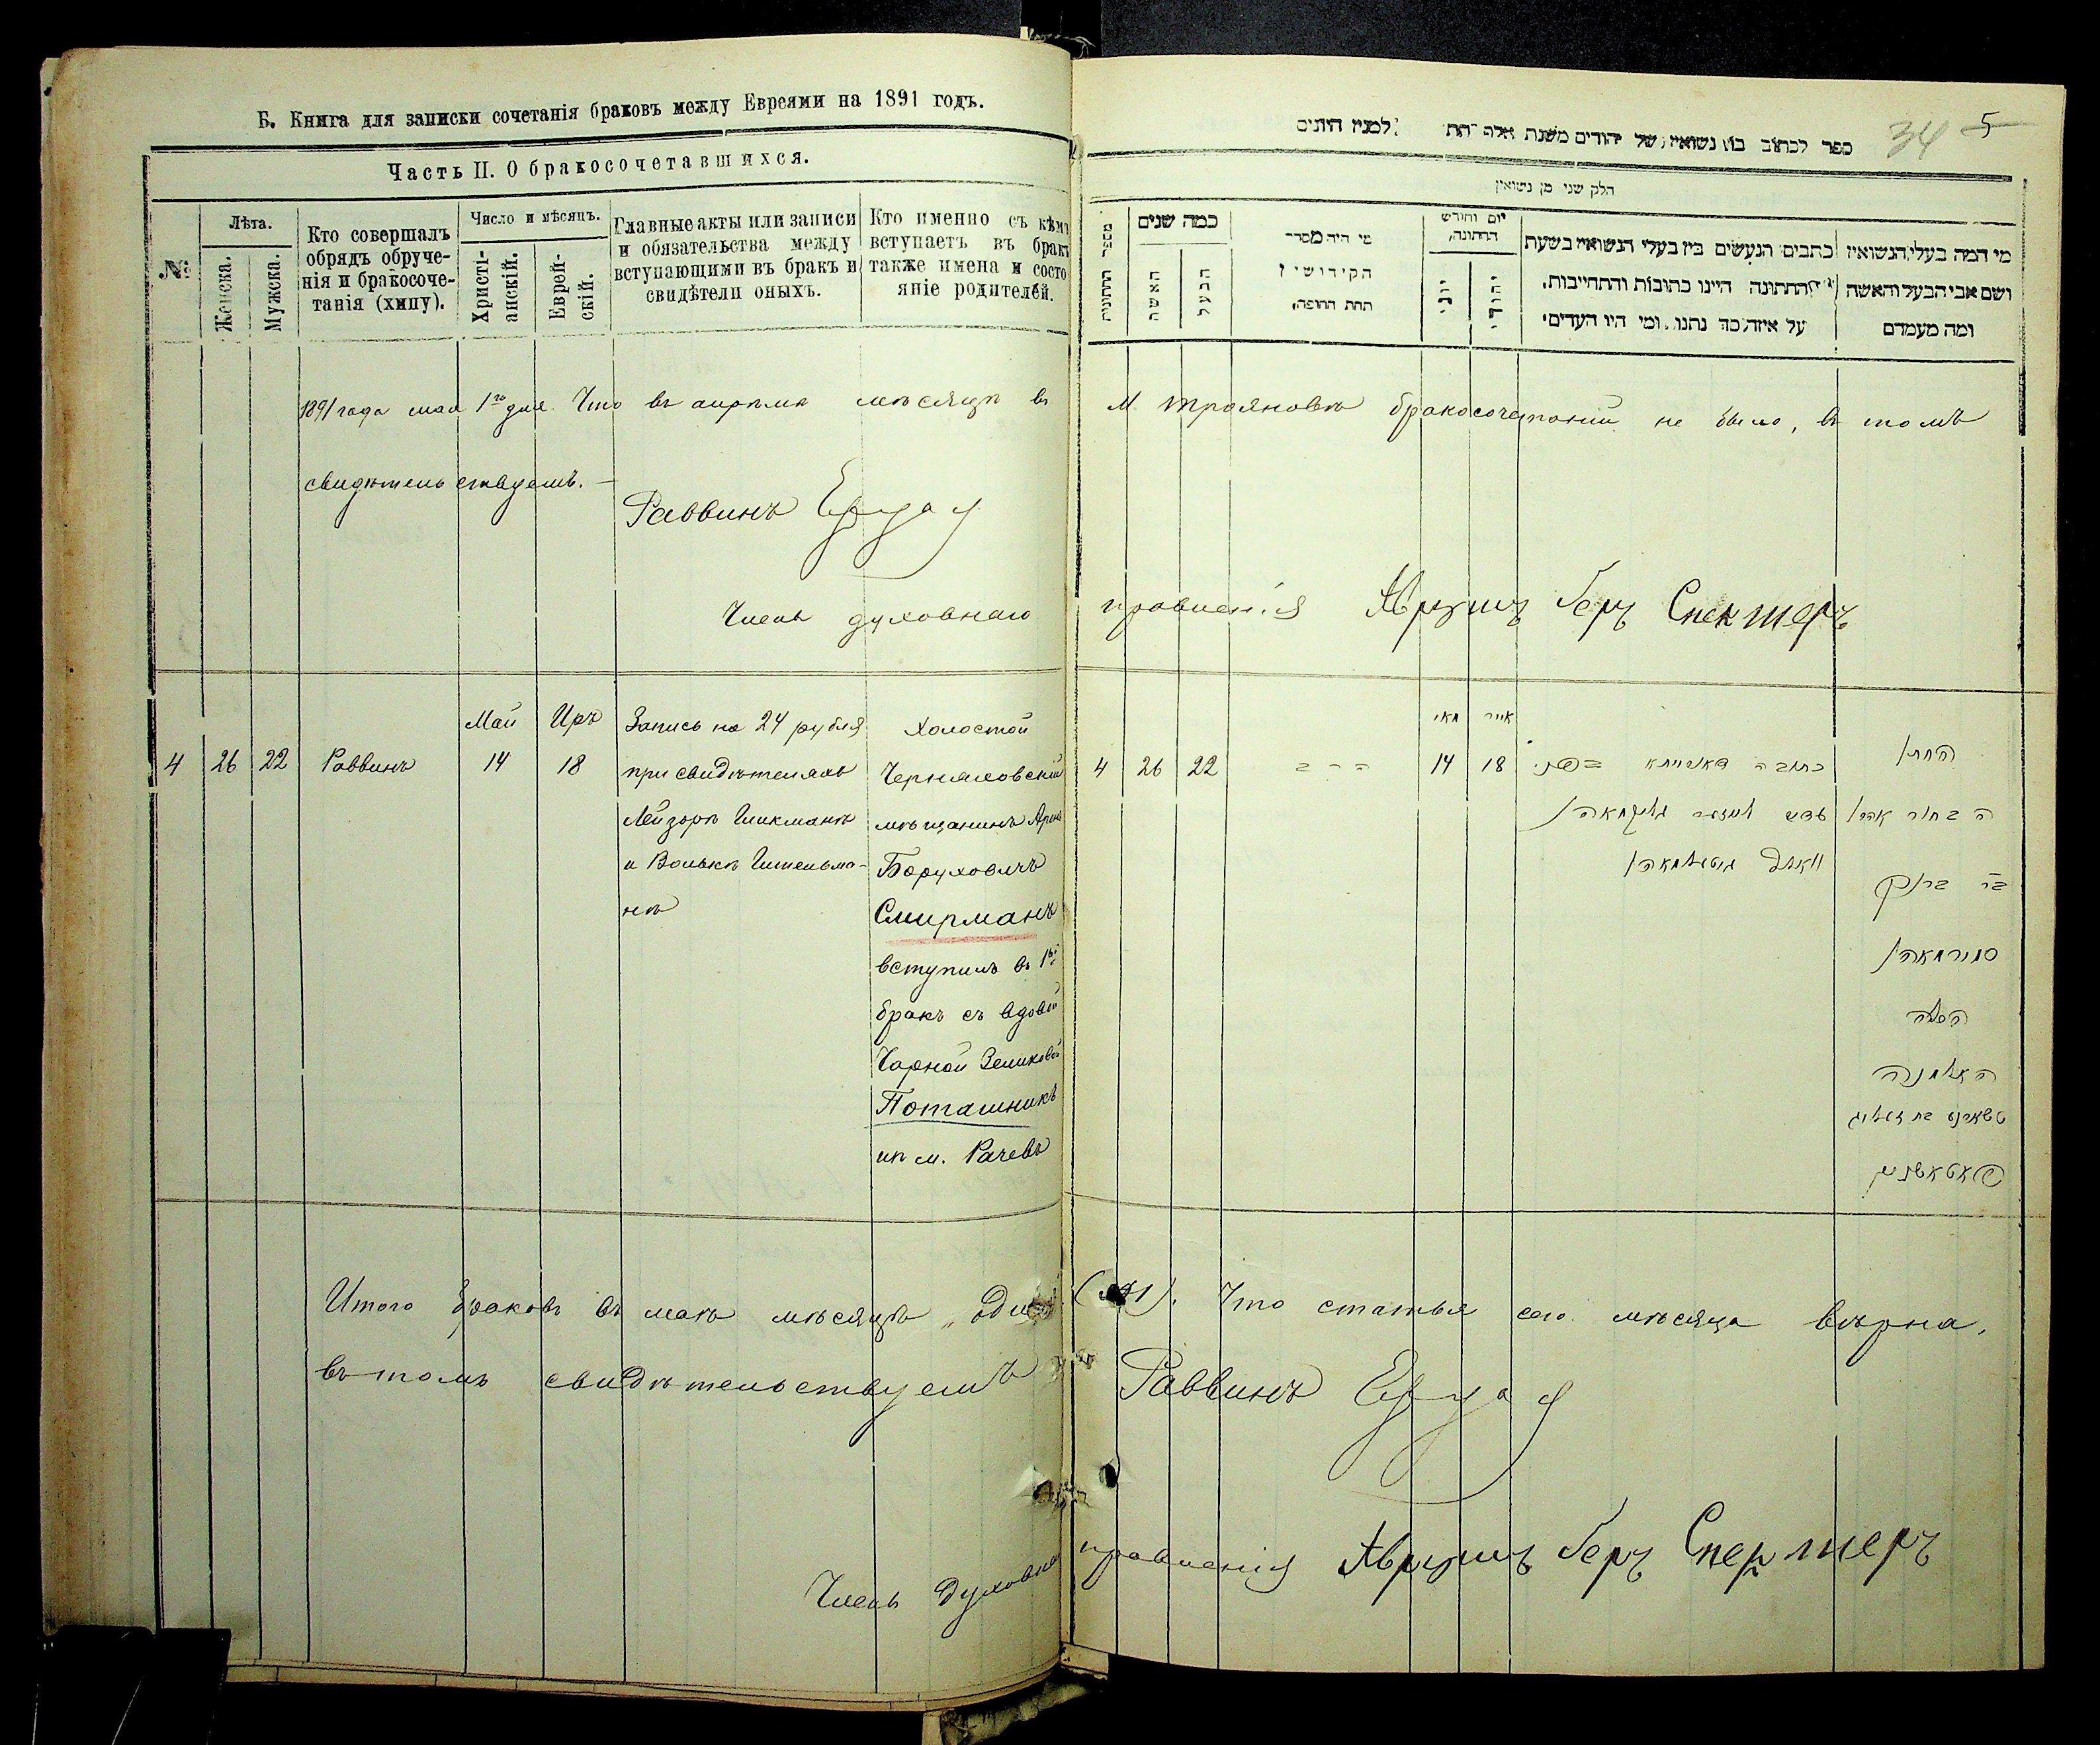 Б. Книга для записки сочетанія браковъ между Евреями на 1891 годъ.
Часть II. О бракосочетавшихся.
№
Лѣта.
Женска.
Мужска.
Кто совершалъ
обрядъ обруче-
нія и бракосоче-
танія (хипу).
Число и мѣсяцъ.
Христі-
анскій.
Еврей-
скій.
Главные акты или записи
и обязательства между
вступающими въ бракъ и
свидѣтели оныхъ.
Кто именно съ кѣмъ
вступаетъ въ бракъ
также имена и состо
яніе родителей.
1891 года мая 1го дня. Что въ апрѣлѣ мѣсяцѣ въ
свидѣтельствуемъ. —
Раввинъ
Членъ духовнаго
Май Иръ Запись на 24 рубля Холостой
4 26 22 Раввинъ 14 18 при свидѣтеляхъ Черняховскій
Лейзорѣ Гликманѣ мѣщанинъ Аронъ
и Волькѣ Гительма- Боруховичъ
нѣ Смирманъ
вступилъ въ 1й
бракъ съ вдовой
Чарной Зеликовой
Поташникъ
из м. Рачевъ
Итого браковъ въ маѣ мѣсяцѣ один
въ томъ свидѣтельствуемъ
Членъ Духовна
34 5
ספר לכתוב בו נשואין של יהודים משנת אלף תת למנין היונים
חלק שני מן נשואין
מספר החתונות
כמה שנים
האשה
הבעל
מי היה מסדר
הקידושין
תחת החופה,
יום וחודש
החתונה,
יוני
יהודי
כתבים הנעשים בין בעלי הנשואין בשעת
החתונה היינו כתובות והתחייבות,
על איזה כך נתנו, ומי היו העדים
מי המה בעלי הנשואין
ושם אבי הבעל והאשה
ומה מעמדם
м. Трояновкѣ бракосочетаний не было, в томъ
правленія Аврумъ Беръ Спектеръ
מאי אייר
4 26 22 הרב 14 18 כתובה דאורייתא החתן
הבחור אהרן
בר ברוך
סמירמאהן
הכלה
האלמנה
טשארנע בת זעליג
פאטאשניק
(№1). Что статья сего мѣсяца вѣрна,
Раввинъ
правленія Аврумъ Беръ Спектеръ